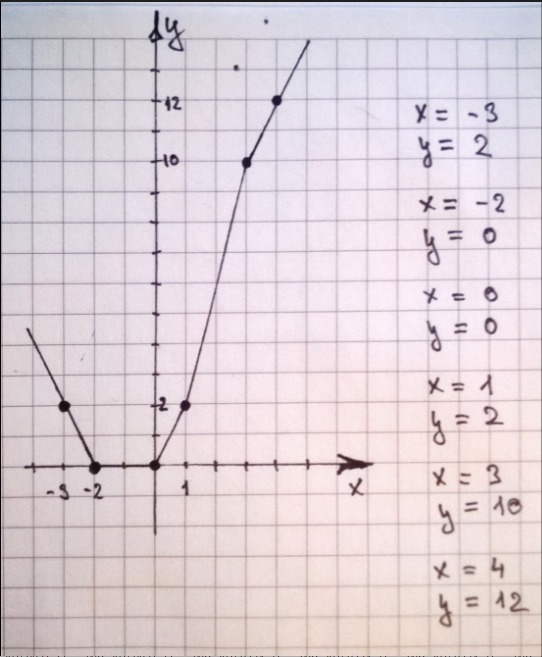 y
12
10
2
-3 -2 1
x
x = -3
y = 2
x = -2
y = 0
x = 0
y = 0
x = 1
y = 2
x = 3
y = 10
x = 4
y = 12